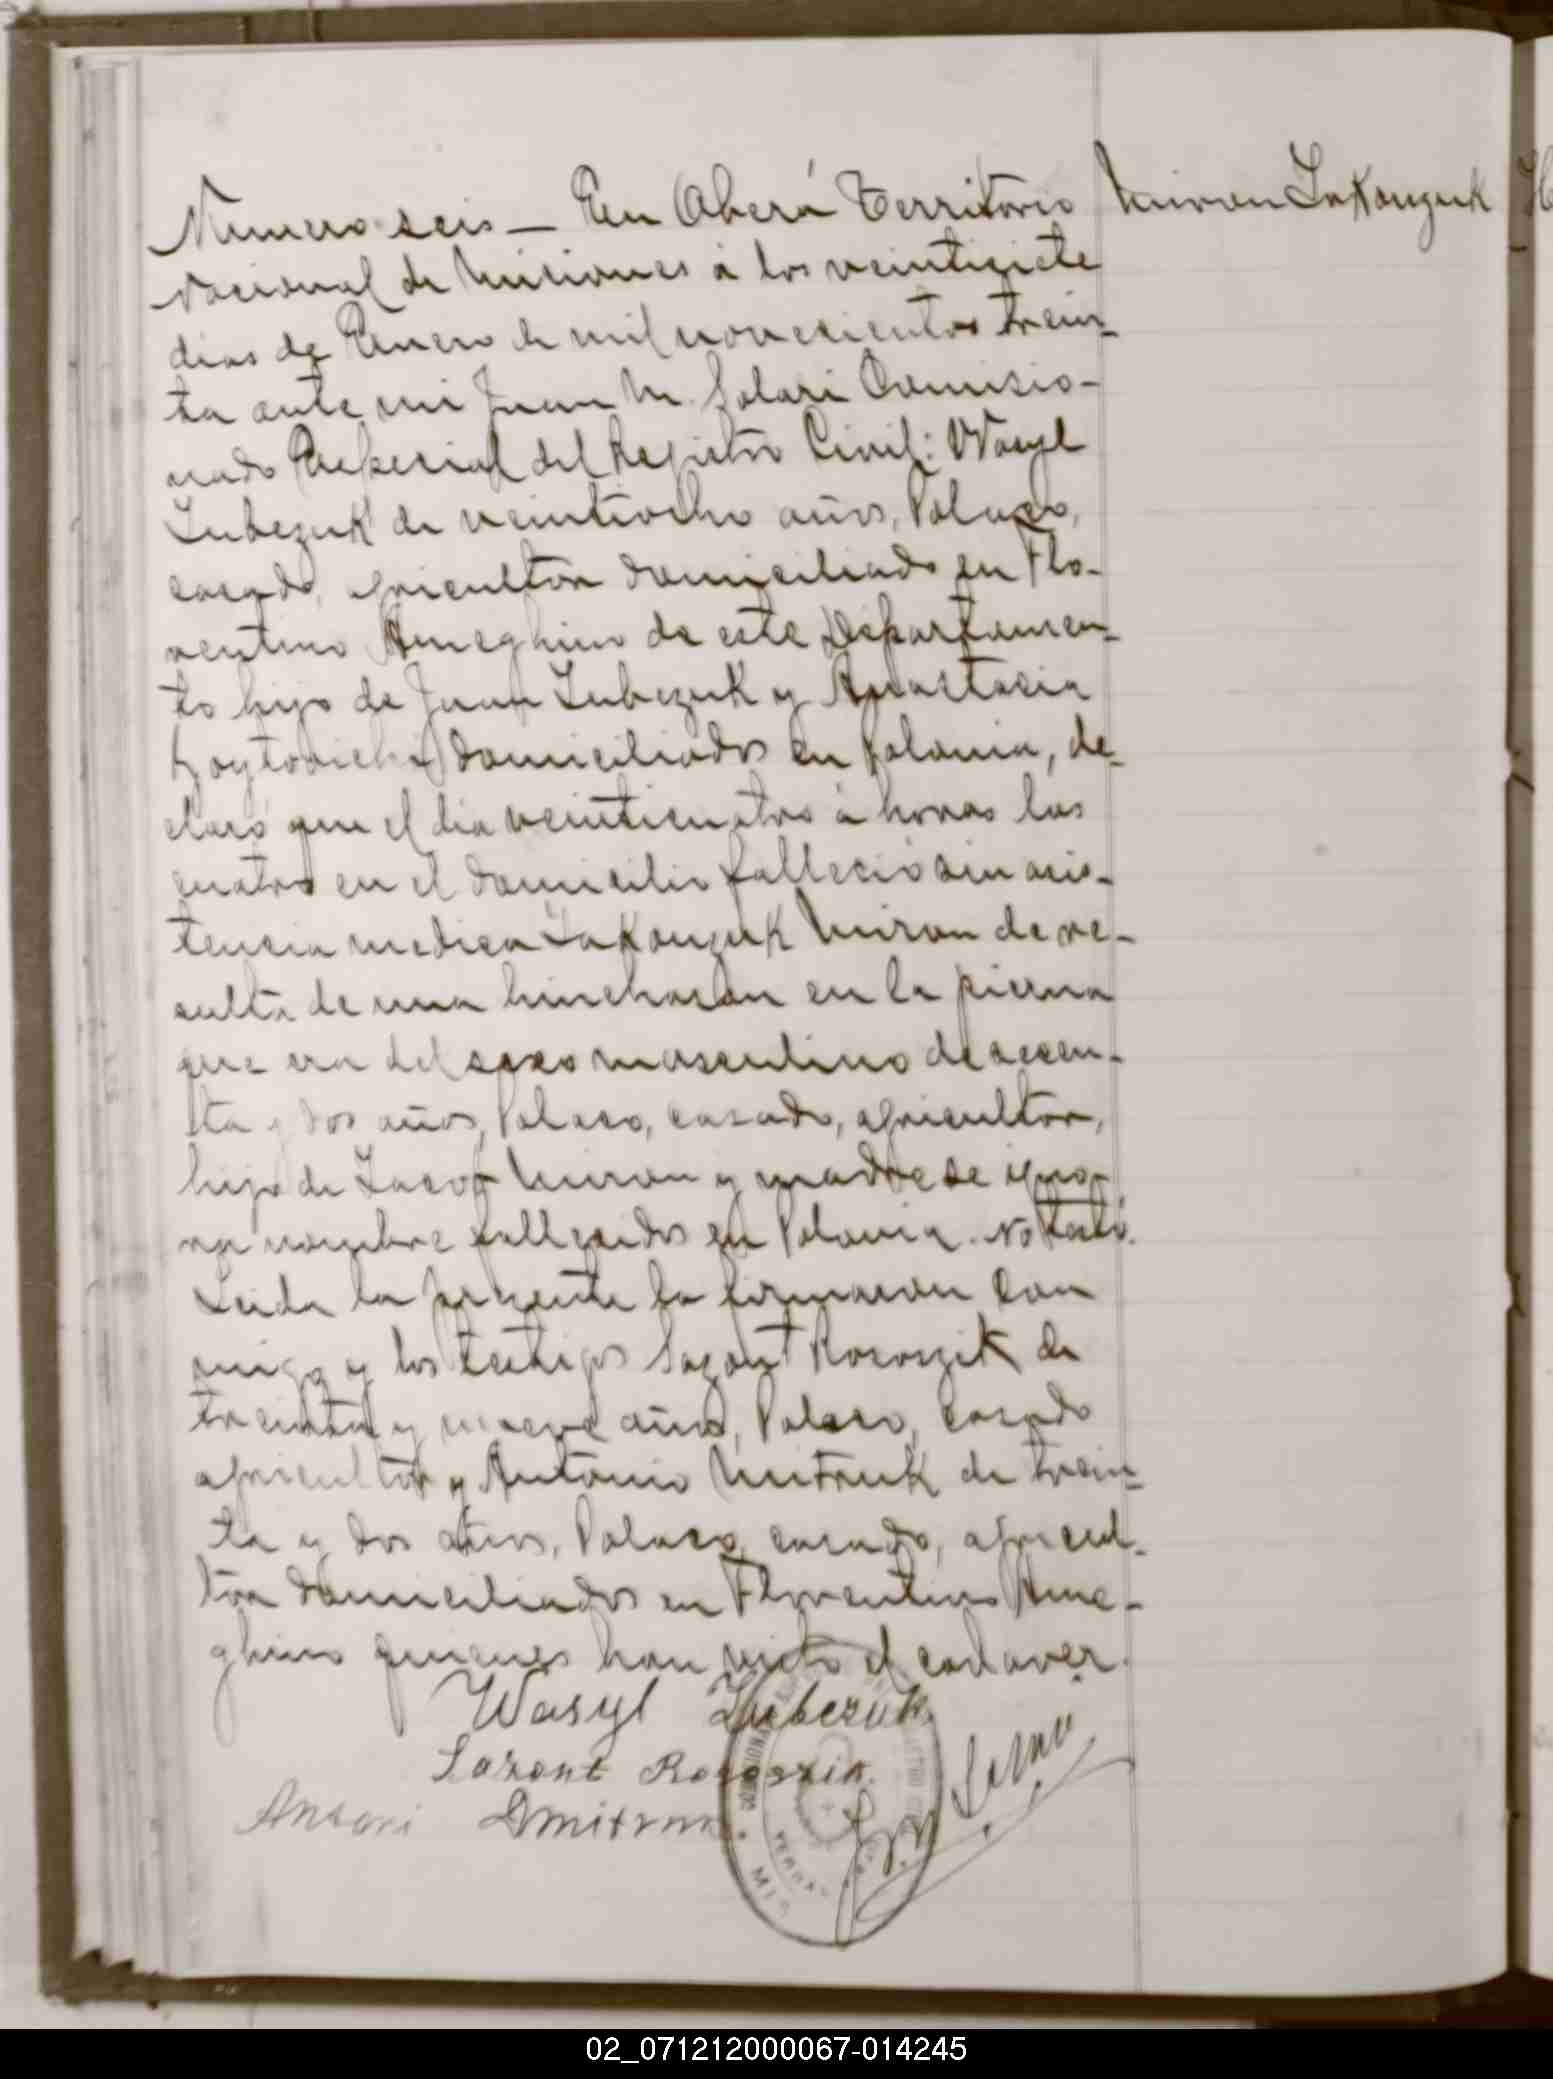 Numero seis — En Oberá Territorio
Nacional de Misiones á los veintisiete
dias de Enero de mil novecientos trein-
ta ante mi Juan M. Solari Comisio-
nado Especial del Registro Civil: Wasyl
Lubczuk de veintiocho años, Polaco,
casado, agricultor domiciliado en Flo-
rentino Ameghino de este Departamen-
to hijo de Juan Lubczuk y Anastacia
domiciliados en Polonia, de-
claró que el dia veinticuatro á horas las
cuatro en el domicilio falleció sin asis-
tencia medica Lakonzuk Miron de re-
sulta de una hinchason en la pierna
que era del sexo masculino de sesen-
ta y dos años, Polaco, casado, agricultor,
hijo de Jacob Miron y madre se igno-
ra nombre fallecidos en Polonia. No testó.
Leida la presente la firmaron con
migo y los testigos Sazont Rososzik de
treinta y nueve años, Polaco, casado
agricultor y Antonio Mitruk de trein-
ta y dos años, Polaco, casado, agricul-
tor domiciliados en Florentino Ame-
ghino quienes han visto el cadaver.
Miron Lakonzuk
Wasyl Lubczuk
Sazont Rososzik
Antoni Dmitruk
02_071212000067-014245